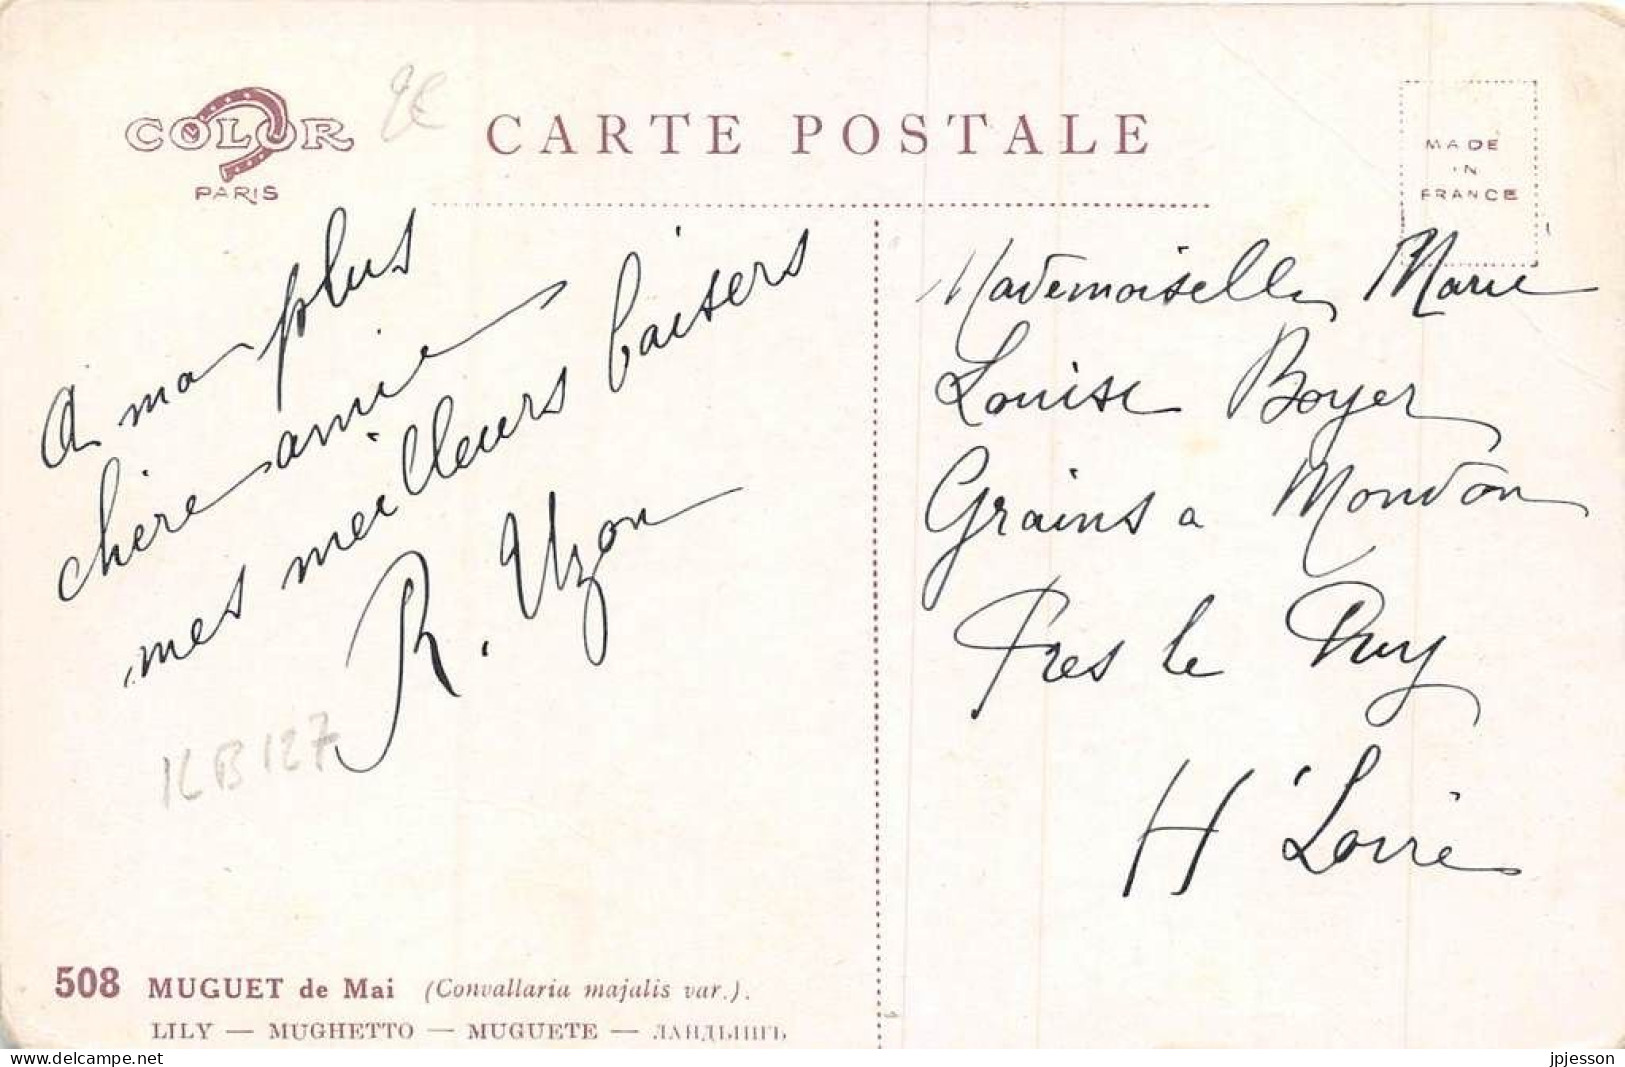 COLOR
PARIS
2€
CARTE POSTALE
MADE
IN
FRANCE
A ma plus
chère amie
mes meilleurs baisers
R. Uzon
KB127
Mademoiselle Marie
Louise Boyer
Grains a Mondon
Pres le Puy
H Loire
508 MUGUET de Mai (Convallaria majalis var.).
LILY — MUGHETTO — MUGUETE — ЛАНДЫШЪ
jpjesson